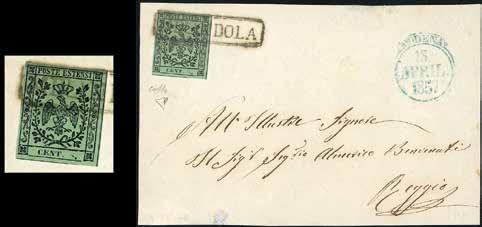 POSTE ESTENSI
CENT.
POSTE ESTENSI
CENT.
DOLA
MODENA
15
APRIL.
1857
All' Illustre Signore
Il Sig. Almerico Benvenuti
Reggio